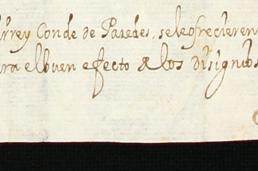 Virrey Conde de Paredes, seleofrecieren
ra elbuen efecto de los disignios